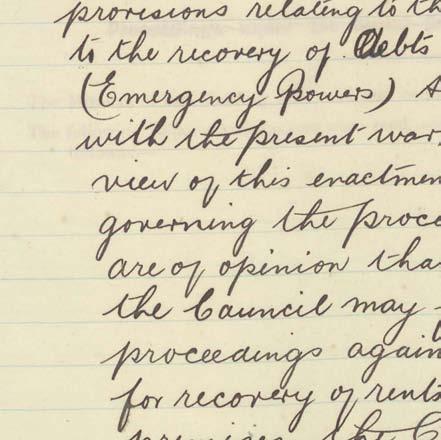 provisions relating to th
to the recovery of debts
(Emergency Powers) A
with the present war.
view of this enactmen
governing the proce
are of opinion tha
the Council may
proceedings again
for recovery of rents
premises. The C